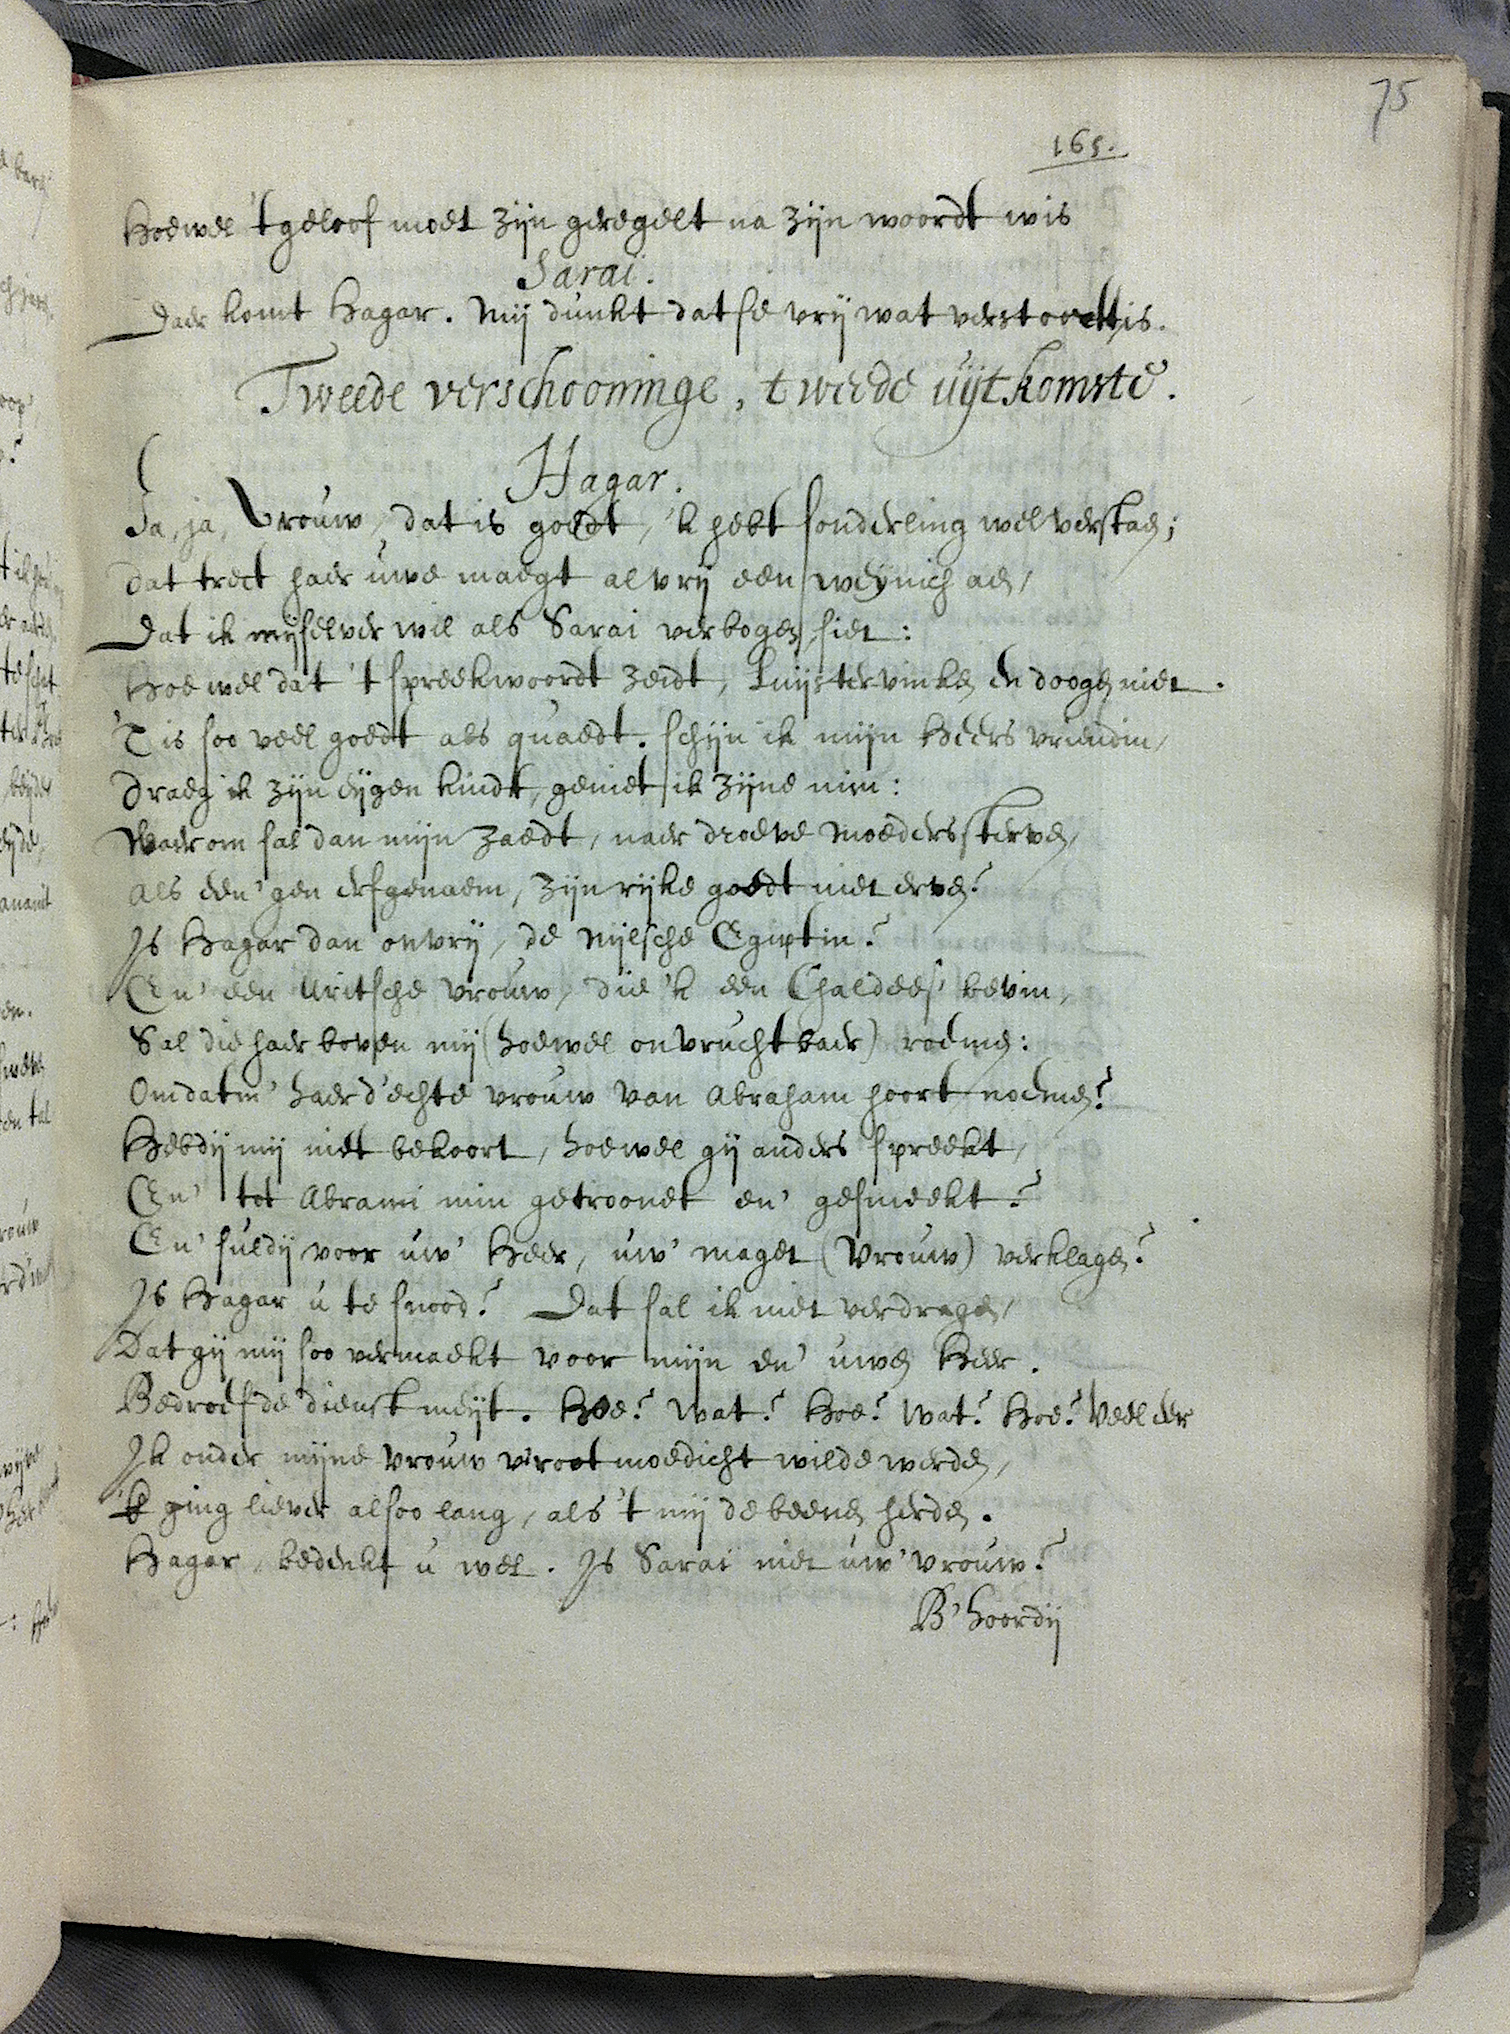 75
165.
Hoewel 't geloof moet zijn geregelt na zijn woordt wis
Sarai.
Daer komt Hagar. Mij dunkt dat se vrij wat verstoort is.
Tweede verschooninge, tweede uijtkomste.
Hagar.
Ja, ja, Vrouw, dat is goedt, 'k hebt sonderling wel verstaen;
dat trect haer uwe maegt al vrij een weijnich aen,
Dat ik mijselver wil als Sarai verbogen siet:
Hoe wel dat 't spreekwoordt zeidt, Luijstervinken en doogen niet.
'T is soo veel goedt als quaedt. schijn ik mijn Heers vriendin,
draeg ik zijn eijgen kindt, geniet ik zijne min:
Waerom sal dan mijn zaedt, naer droeve moeders sterven,
als een' gen erfgenaem, zijn rijke goedt niet erven?
Is Hagar dan onvrij, de Nijlsche Egiptin?
En' een Uritsche vrouw, die 'k een Chaldees' bevin,
Sal die haer boven mij (hoewel onvruchtbaer) roemen:
Omdatm' haer d'echte vrouw van Abraham hoort noemen?
Hebdij mij niet bekoort, hoewel gij anders spreekt,
En' tot Abrami min getroonet en' gesmeekt?
En' suldij voor uw' Heer, uw' maget (Vrouw) verklagen?
Is Hagar u te snood? Dat sal ik niet verdragen,
Dat gij mij soo vermaekt voor mijn en' uwen Heer.
Bedroefde dienstmeijt. Hoe? Wat? Hoe? Wat? Hoe? Veel eer
Ik onder mijne vrouw v'rootmoedicht wilde werden,
'k ging liever alsoo lang, als 't mij de beenen herden.
Hagar, bedenkt u wel. Is Sarai niet uw' vrouw?
B'hoordij